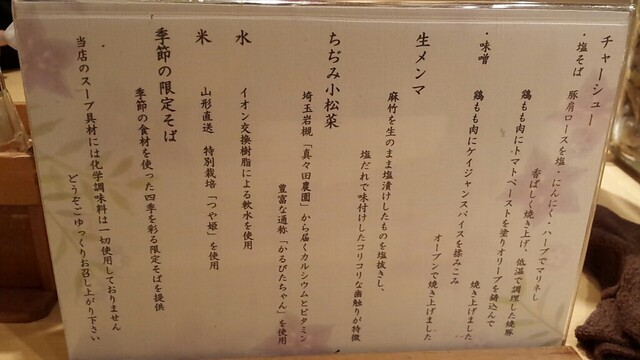 チャーシュー
・塩そば 豚肩ロースを塩・にんにく・ハーブでマリネし
香ばしく焼き上げ、低温で調理した焼豚
鶏もも肉にトマトペーストを塗りオリーブを鋳込んで
焼き上げました
・味噌 鶏もも肉にケイジャンスパイスを揉みこみ
オーブンで焼き上げました
生メンマ
麻竹を生のまま塩漬けしたものを塩抜きし、
塩だれで味付けしたコリコリな歯触りが特徴
ちぢみ小松菜
埼玉岩槻「真々田農園」から届くカルシウムとビタミン
豊富な通称「かるびたちゃん」を使用
水
イオン交換樹脂による軟水を使用
米
山形直送 特別栽培「つや姫」を使用
季節の限定そば
季節の食材を使った四季を彩る限定そばを提供
当店のスープ具材には化学調味料は一切使用しておりません
どうぞごゆっくりお召し上がり下さい